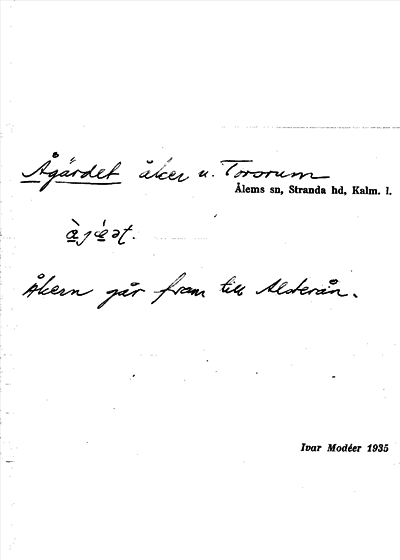 Ågärdet åker u. Tororum
Ålems sn, Stranda hd, Kalm. l.
Åkern går fram till Alsterån.
Ivar Modéer 1935